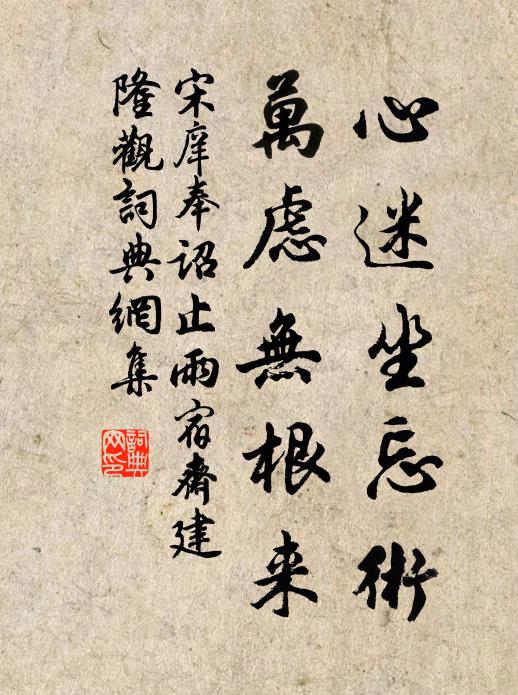 心迷坐忘術
萬慮無根来
宋庠奉詔止雨宿齋建
隆觀詞典網集
詞典網印